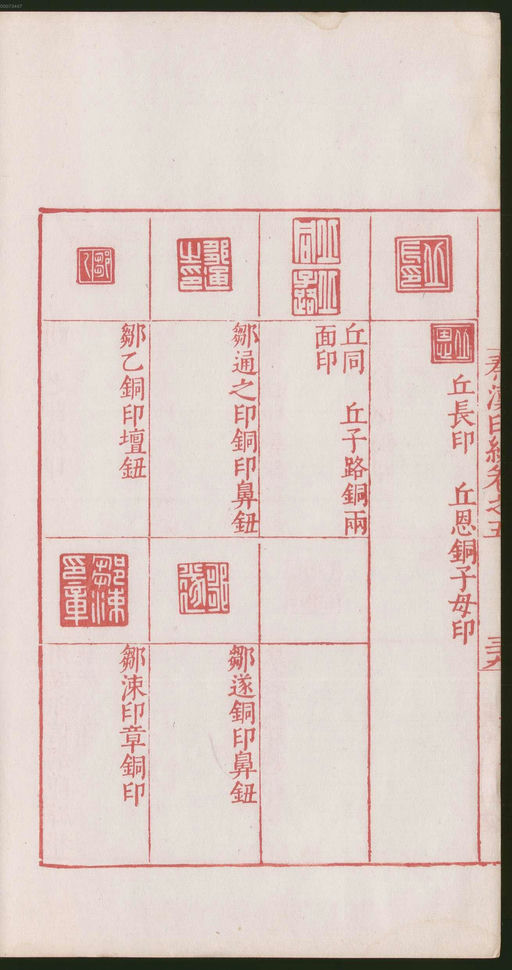 00073447
秦漢印統卷之五
三十九
丘長印　丘恩銅子母印
丘同　丘子路銅兩
面印
鄒通之印銅印鼻鈕
鄒遂銅印鼻鈕
鄒乙銅印壇鈕
鄒涑印章銅印